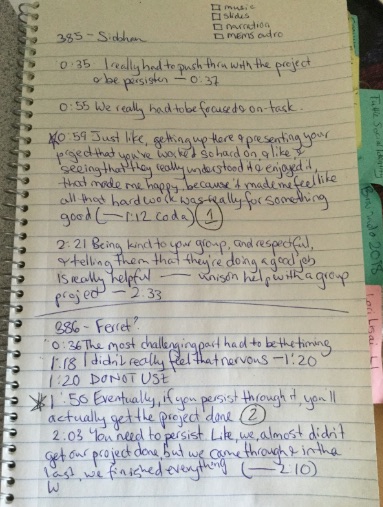 music
slides
narration
memo audio
385 - Siobhan
0:35 I really had to push thru with the project
& be persistent — 0:37
0:55 We really had to be focused & on-task.
*0:59 Just like, getting up there & presenting your
project that you've worked so hard on & like
seeing that they really understood it & enjoyed it
that made me happy because it made me feel like
all that hard work was really for something
good (— 1:12 coda) 1
2:21 Being kind to your group, and respectful,
& telling them that they're doing a good job
is really helpful — help with a group
project — 2:33
386 - Ferret?
0:36 The most challenging part had to be the timing
1:18 I didn't really feel that nervous — 1:20
1:20 DO NOT USE
*1:50 Eventually, if you persist through it, you'll
actually get the project done 2
2:03 You need to persist. Like, we, almost didn't
get our project done, but we came through & in the
last, we finished everything (— 2:10)
W
2018